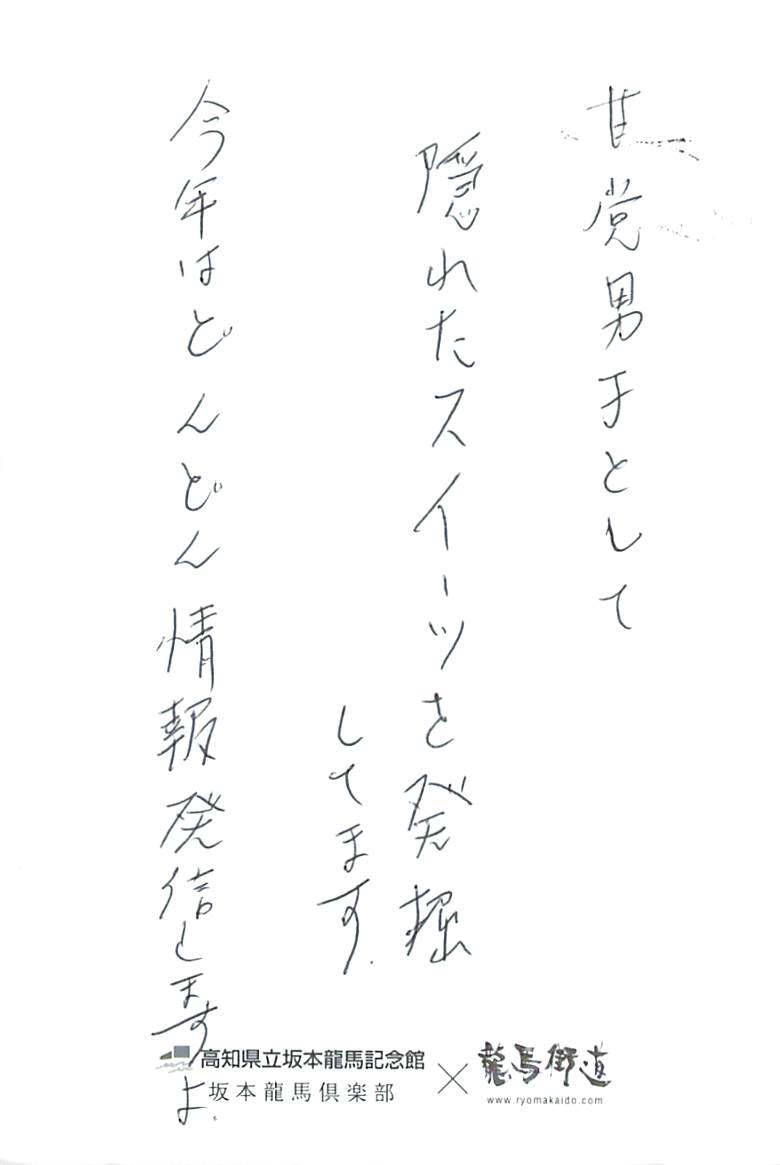 甘党男子として
隠れたスイーツを発掘
してます.
今年はどんどん情報発信しますよ.
高知県立坂本龍馬記念館
坂本龍馬倶楽部
×
龍馬街道
www.ryomakaido.com